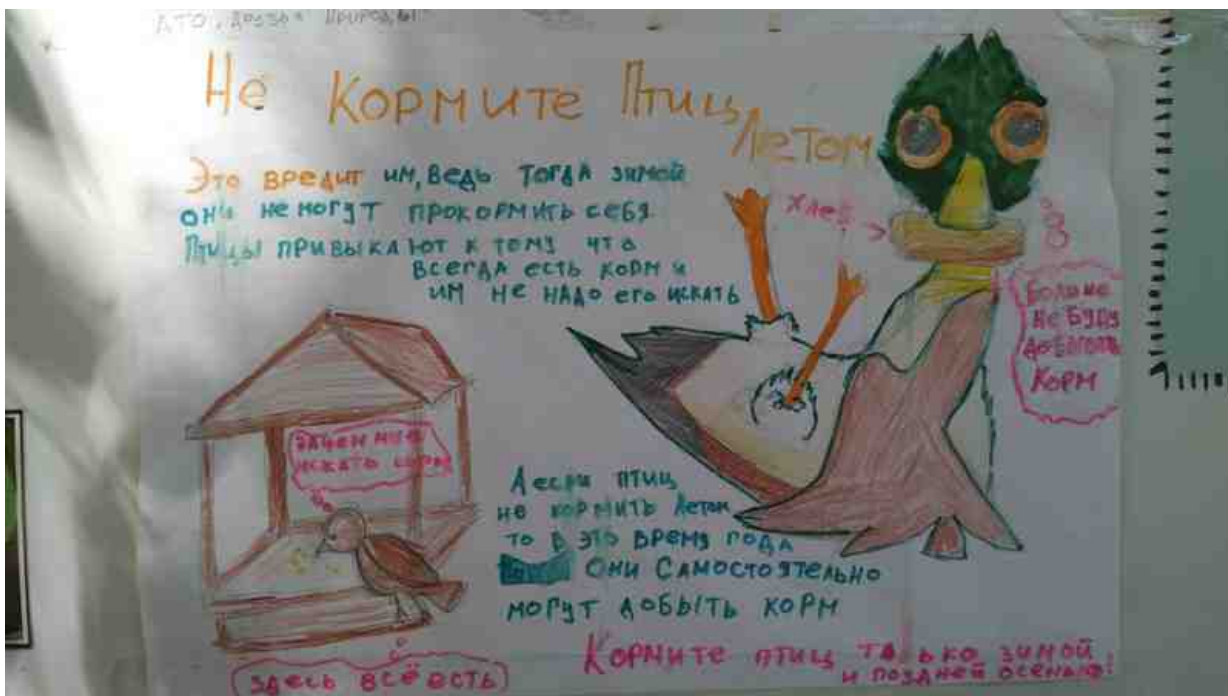 ДТО "Друзья природы"
Не Кормите Птиц
Летом
Это вредит им, ведь тогда зимой
они не могут прокормить себя.
Птицы привыкают к тому что
всегда есть корм и
им не надо его искать
хлеб
Больше
не буду
добывать
корм
зачем мне
искать корм
А если птиц
не кормить летом
то в это время года
они самостоятельно
могут добыть корм
Здесь всё есть
Кормите птиц только зимой
и поздней осенью!